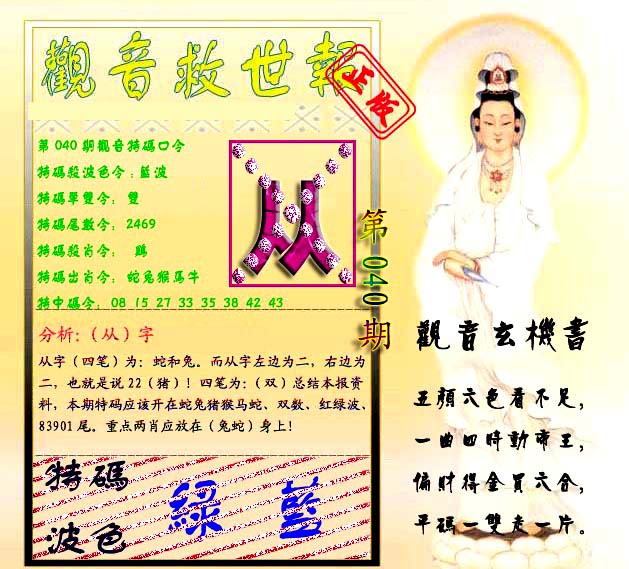 觀音救世報
正版
第040期觀音特碼口令
特碼殺波色令：藍波
特碼單雙令： 雙
特碼尾數令： 2469
特碼殺肖令： 鷄
特碼出肖令： 蛇兔猴馬牛
特中碼令： 08 15 27 33 35 38 42 43
从
第040期
分析：（从）字
从字（四笔）为：蛇和兔。而从字左边为二，右边为
二，也就是说 22（猪）！四笔为：（双）总结本报资
料，本期特码应该开在蛇兔猪猴马蛇、双数、红绿波、
83901 尾。重点两肖应放在（兔蛇）身上！
特碼
波色
綠 藍
觀音玄機書
五顏六色看不足，
一曲四時動帝王，
偏財得金買六合，
平碼一雙走一片。